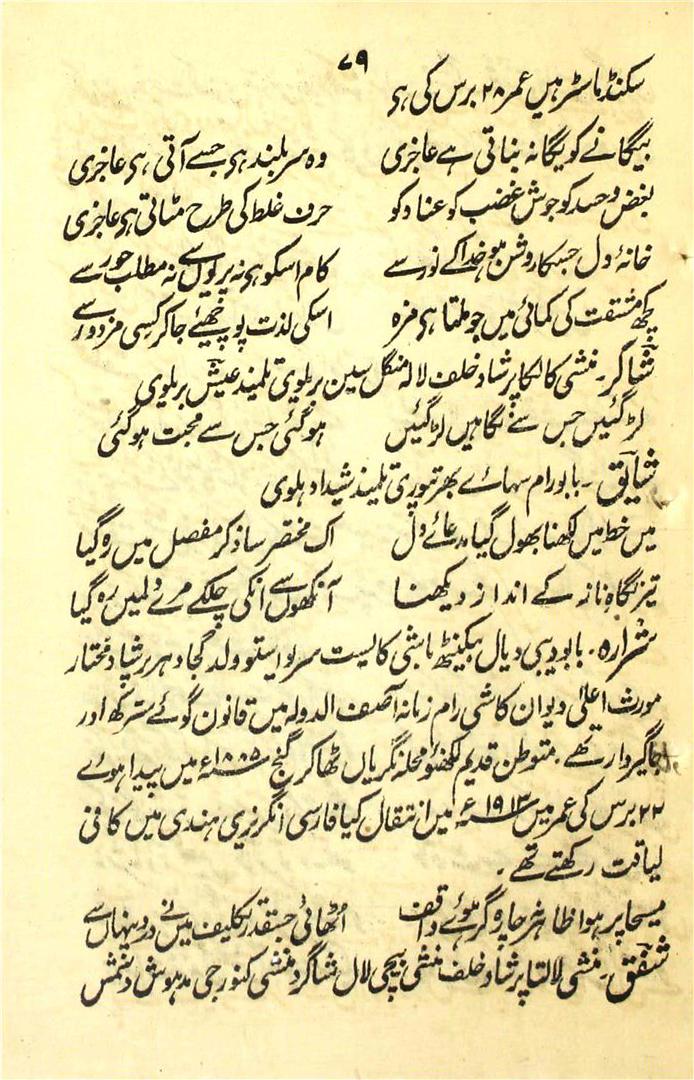 ۷۹
سکنڈ ماسٹر ہیں عمر ۲۸ برس کی ہی
بیگانے کو یگانہ بناتی ہے عاجزی وہ سر بلند ہی جسے آتی ہی عاجزی
بغض و حسد کو جوش غضب کو عناد کو حرف غلط کی طرح مٹاتی ہی عاجزی
خانۂ دل جسکا روشن ہو خدا کے نور سے کام اسکو ہی نہ پریوں سے نہ مطلب حور سے
کچھ مشقت کی کمائی میں جو ملتا ہی مزہ اسکی لذت پوچھیئے جا کر کسی مزدور سے
شاکر۔ منشی کالکا پرشاد خلف لالہ منگل سین بریلوی تلمیذ عیش بریلوی
لڑ گئیں جس سے نگاہیں لڑ گئیں ہو گئی جس سے محبت ہو گئی
شایق۔ بابو رام سہائے بھرتپوری تلمیذ شیدا دہلوی
میں خط میں لکھنا بھول گیا مدعائے دل اک مختصر سا ذکر مفصل میں رہ گیا
تیر نگاہ ناز کے انداز دیکھنا آنکھوں سے انکی چلکے مرے دلمیں رہ گیا
شرارہ۔ بابو دیبی دیال بیکنٹھ باشی کایست سریواستو ولد گجادھر پرشاد مختار
مورث اعلیٰ دیوان کاشی رام زمانہ آصف الدولہ میں قانون گوئے سرکھ اور
جاگیردار تھے۔ متوطن قدیم لکھنؤ محلہ نگریاں ٹھاکر گنج ۱۸۸۵ء میں پیدا ہوئے
۲۲ برس کی عمر میں ۱۹۱۳ء میں انتقال کیا فارسی انگریزی ہندی میں کافی
لیاقت رکھتے تھے۔
مسیحا پر ہوا ظاہر نہ چارہ گر ہوئے واقف اٹھائی جسقدر تکلیف میں نے درد پنہاں سے
شفق۔ منشی لالتا پرشاد خلف منشی بیچی لال شاگرد منشی کنور جی مدہوش و شمس